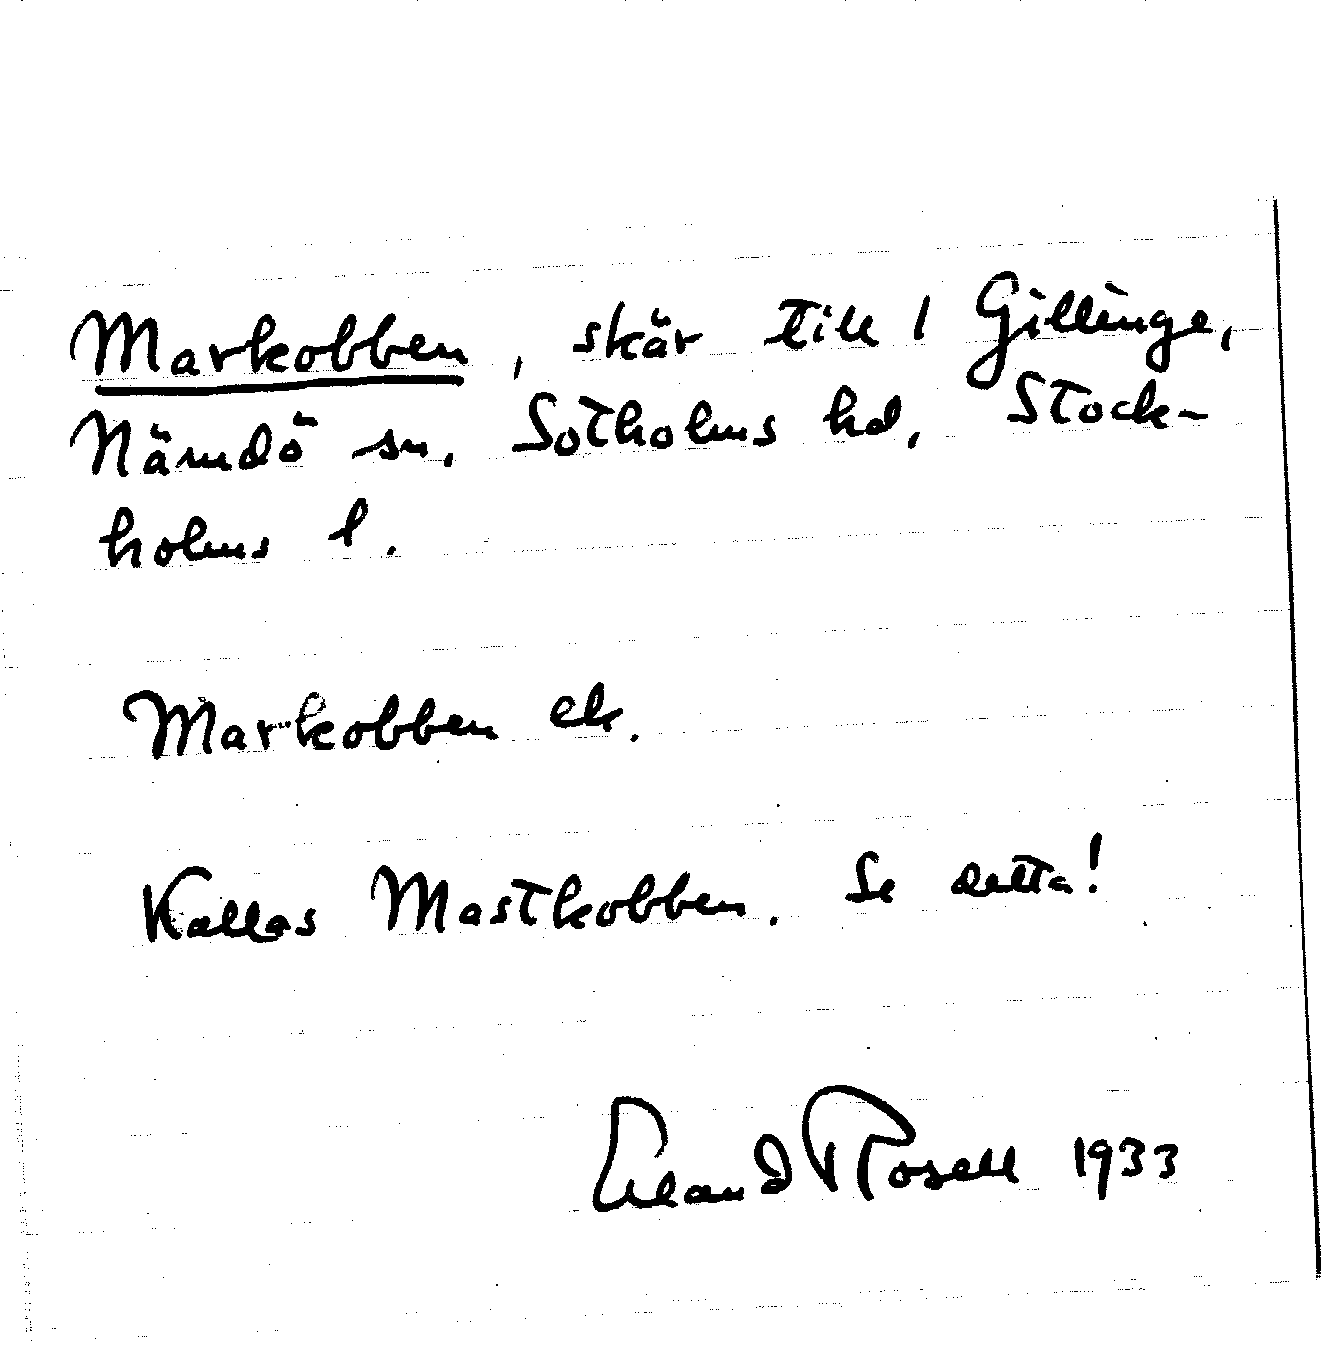 Markobben, skär till 1 Gillinge,
Nämdö sn. Sotholms hd, Stock-
holms l.
Markobben ek.
Kallas Mastkobben. Se detta!
Erland Rosell 1933